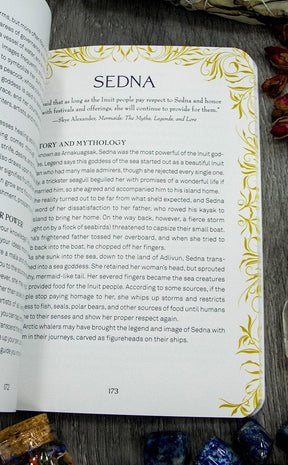 SEDNA
said that as long as the Inuit people pay respect to Sedna and honor
with festivals and offerings, she will continue to provide for them."
—Skye Alexander, Mermaids: The Myths, Legends, and Lore
TORY AND MYTHOLOGY
known as Arnakuagsak, Sedna was the most powerful of the Inuit god-
Legend says this goddess of the sea started out as a beautiful Inuit
an who had many male admirers, though she rejected every single one.
a trickster seagull beguiled her with promises of a wonderful life if
married him, so she agreed and accompanied him to his island home.
he reality turned out to be far from what she'd expected, and Sedna
word of her dissatisfaction to her father, who rowed his kayak to
island to bring her home. On the way back, however, a fierce storm
ught on by a flock of seabirds) threatened to capsize their small boat.
a's frightened father tossed her overboard, and when she tried to
back into the boat, he chopped off her fingers.
he sunk into the sea, down to the land of Adlivun, Sedna trans-
ed into a sea goddess. She retained her woman's head, but sprouted
thy, mermaid-like tail. Her severed fingers became the sea creatures
provided food for the Inuit people. According to some sources, if the
e stop paying homage to her, she whips up storms and restricts
ess to fish, seals, polar bears, and other sources of food until humans
e to their senses and show her respect again.
Arctic whalers may have brought the legend and image of Sedna with
on their journeys, carved as figureheads on their ships.
173
172
POWER